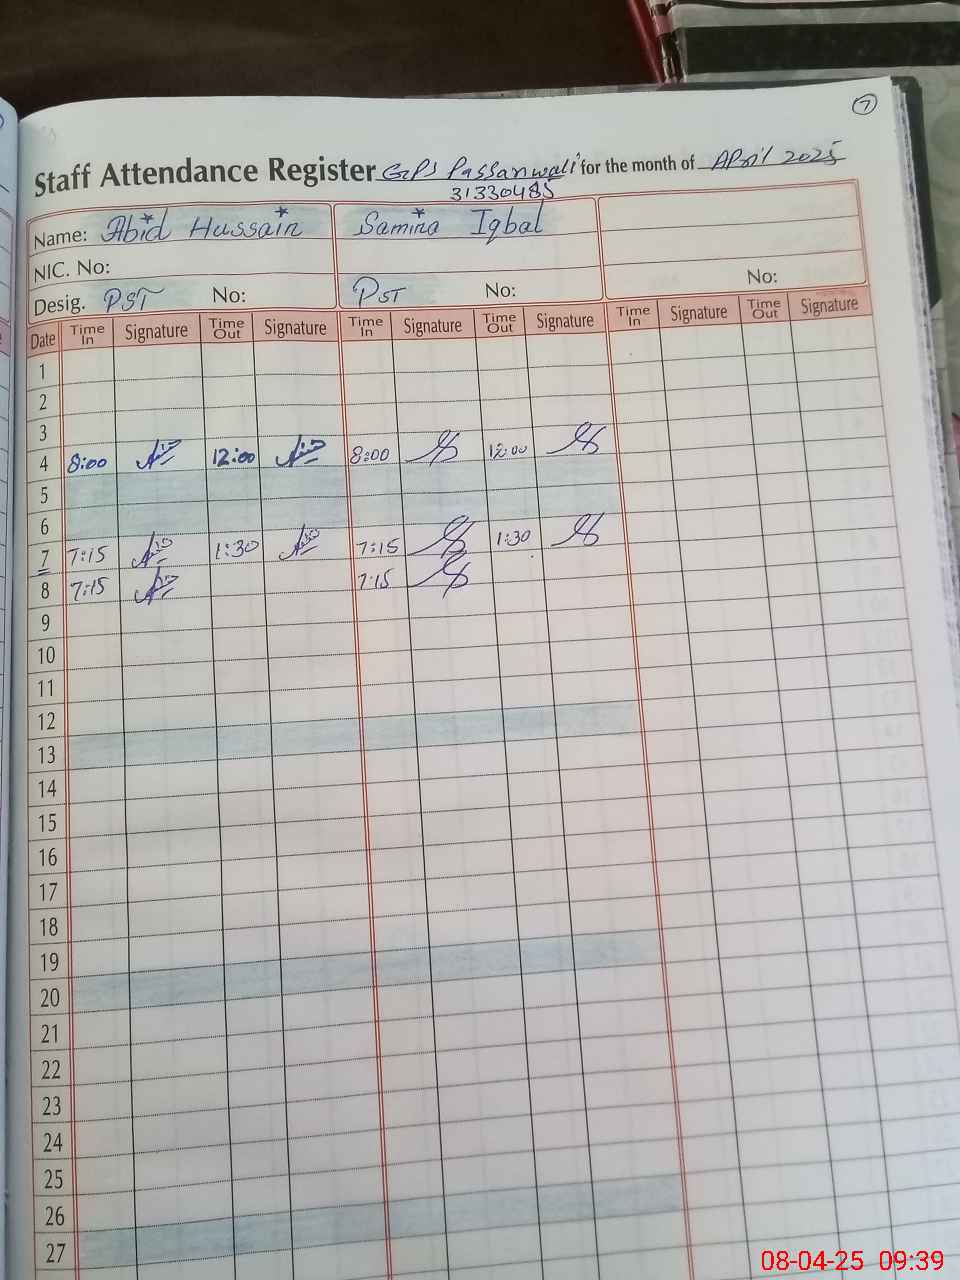 7
Staff Attendance Register GPS Passanwali for the month of April 2025
31330485
Name: Abid Hussain Samina Iqbal
NIC. No:
Desig. PST No: PST No: No:
Date Time In Signature Time Out Signature Time In Signature Time Out Signature Time In Signature Time Out Signature
1
2
3
4 8:00 12:00 8:00 12:00
5
6
7 7:15 1:30 7:15 1:30
8 7:15 7:15
9
10
11
12
13
14
15
16
17
18
19
20
21
22
23
24
25
26
27
08-04-25 09:39